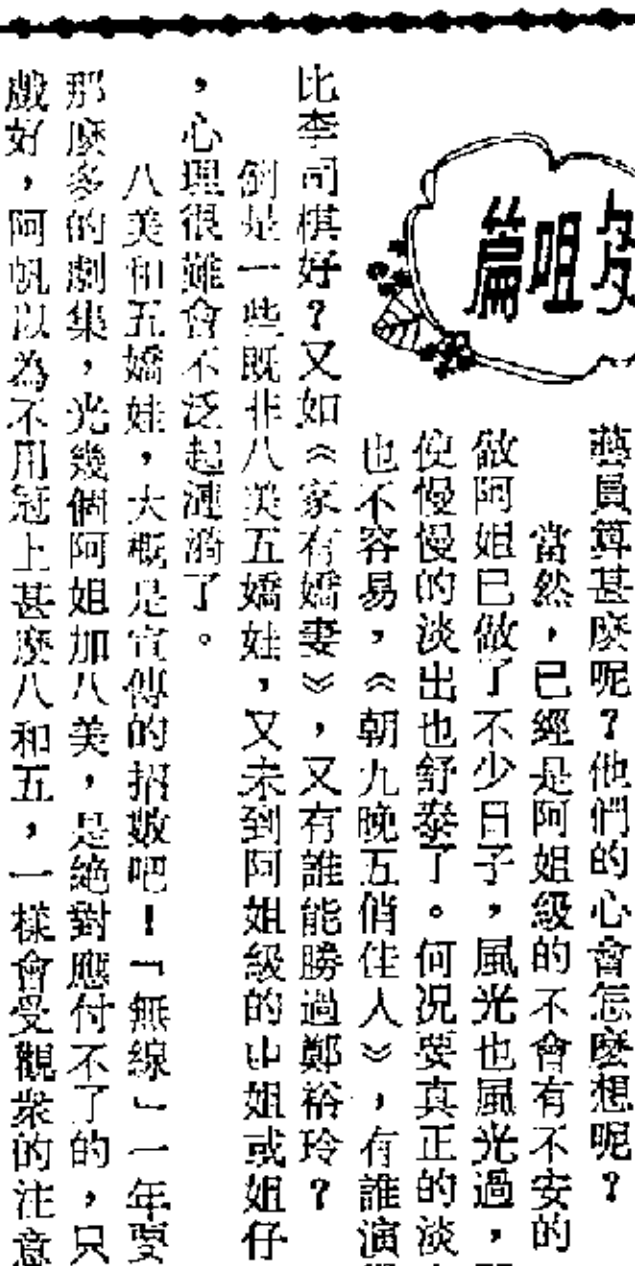 姐篇
藝員算甚麼呢？他們的心會怎麼想呢？
當然，已經是阿姐級的不會有不安的
做阿姐已做了不少日子，風光也風光過，
使慢慢的淡出也舒泰了。何况要真正的淡
也不容易，《朝九晚五俏佳人》，有誰演
比李司棋好？又如《家有嬌妻》，又有誰能勝過鄭裕玲？
倒是一些既非八美五嬌娃，又未到阿姐級的中姐或姐仔
，心理很難會不泛起漣漪了。
八美和五嬌娃，大概是宣傳的招數吧！「無線」一年要
那麼多的劇集，光幾個阿姐加八美，是絕對應付不了的，只
戲好，阿帆以為不用冠上甚麼八和五，一樣會受觀衆的注意